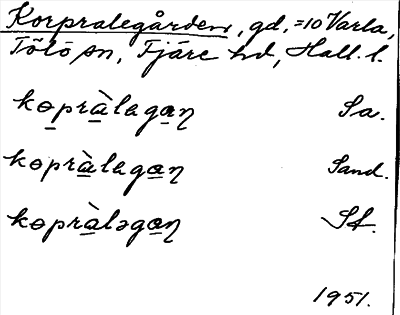 Korpralegården, gd, =10 Varla,
Tölö sn, Fjäre hd, Hall. l.
kɵpràlagaɳ Sa.
kɵpràlagaɳ Sand.
kɵpràləgaɳ St.
1951.